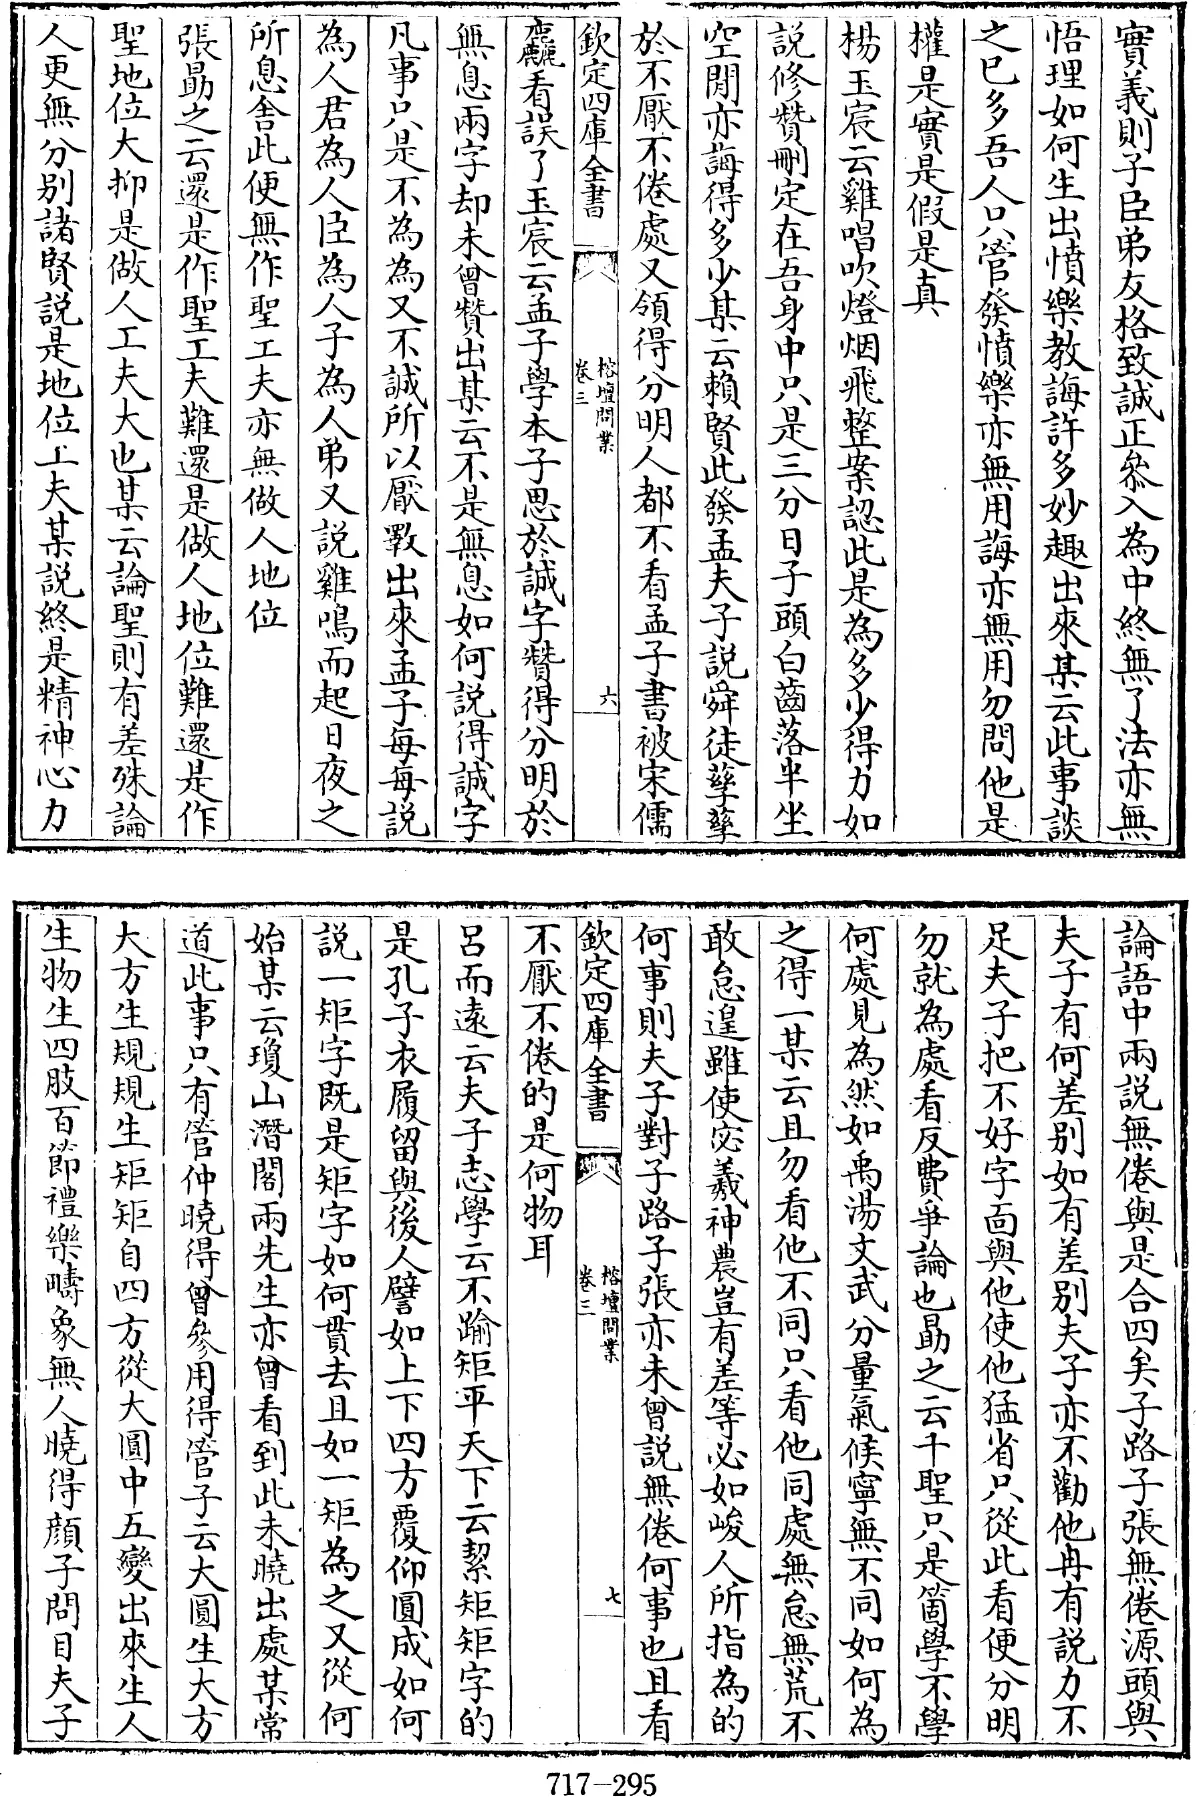 實義則子臣弟友格致誠正叅入為中終無了法亦無
悟理如何生出憤樂教誨許多妙趣出來某云此事談
之已多吾人只管發憤樂亦無用誨亦無用勿問他是
權是實是假是真
楊玉宸云雞唱吹燈烟飛整案認此是為多少得力如
說修贊刪定在吾身中只是三分日子頭白齒落半坐
空閒亦誨得多少某云賴賢此發孟夫子說舜徒孳孳
於不厭不倦處又領得分明人都不看孟子書被宋儒
欽定四庫全書
榕壇問業
卷三
六
麤看誤了玉宸云孟子學本子思於誠字贊得分明於
無息兩字却未曾贊出某云不是無息如何說得誠字
凡事只是不為為又不誠所以厭斁出來孟子每每說
為人君為人臣為人子為人弟又說雞鳴而起日夜之
所息舍此便無作聖工夫亦無做人地位
張勗之云還是作聖工夫難還是做人地位難還是作
聖地位大抑是做人工夫大也某云論聖則有差殊論
人更無分別諸賢說是地位工夫某說終是精神心力
論語中兩說無倦與是合四矣子路子張無倦源頭與
夫子有何差別如有差別夫子亦不勸他冉有說力不
足夫子把不好字面與他使他猛省只從此看便分明
勿就為處看反費爭論也勗之云千聖只是箇學不學
何處見為然如禹湯文武分量氣候寧無不同如何為
之得一某云且勿看他不同只看他同處無怠無荒不
敢怠遑雖使宓羲神農豈有差等必如峻人所指為的
何事則夫子對子路子張亦未曾說無倦何事也且看
欽定四庫全書
榕壇問業
卷三
七
不厭不倦的是何物耳
呂而遠云夫子志學云不踰矩平天下云絜矩矩字的
是孔子衣履留與後人譬如上下四方覆仰圓成如何
說一矩字既是矩字如何貫去且如一矩為之又從何
始某云瓊山潛閣兩先生亦曾看到此未曉出處某常
道此事只有管仲曉得曾參用得管子云大圓生大方
大方生規規生矩矩自四方從大圓中五變出來生人
生物生四肢百節禮樂疇象無人曉得顔子問目夫子
717-295